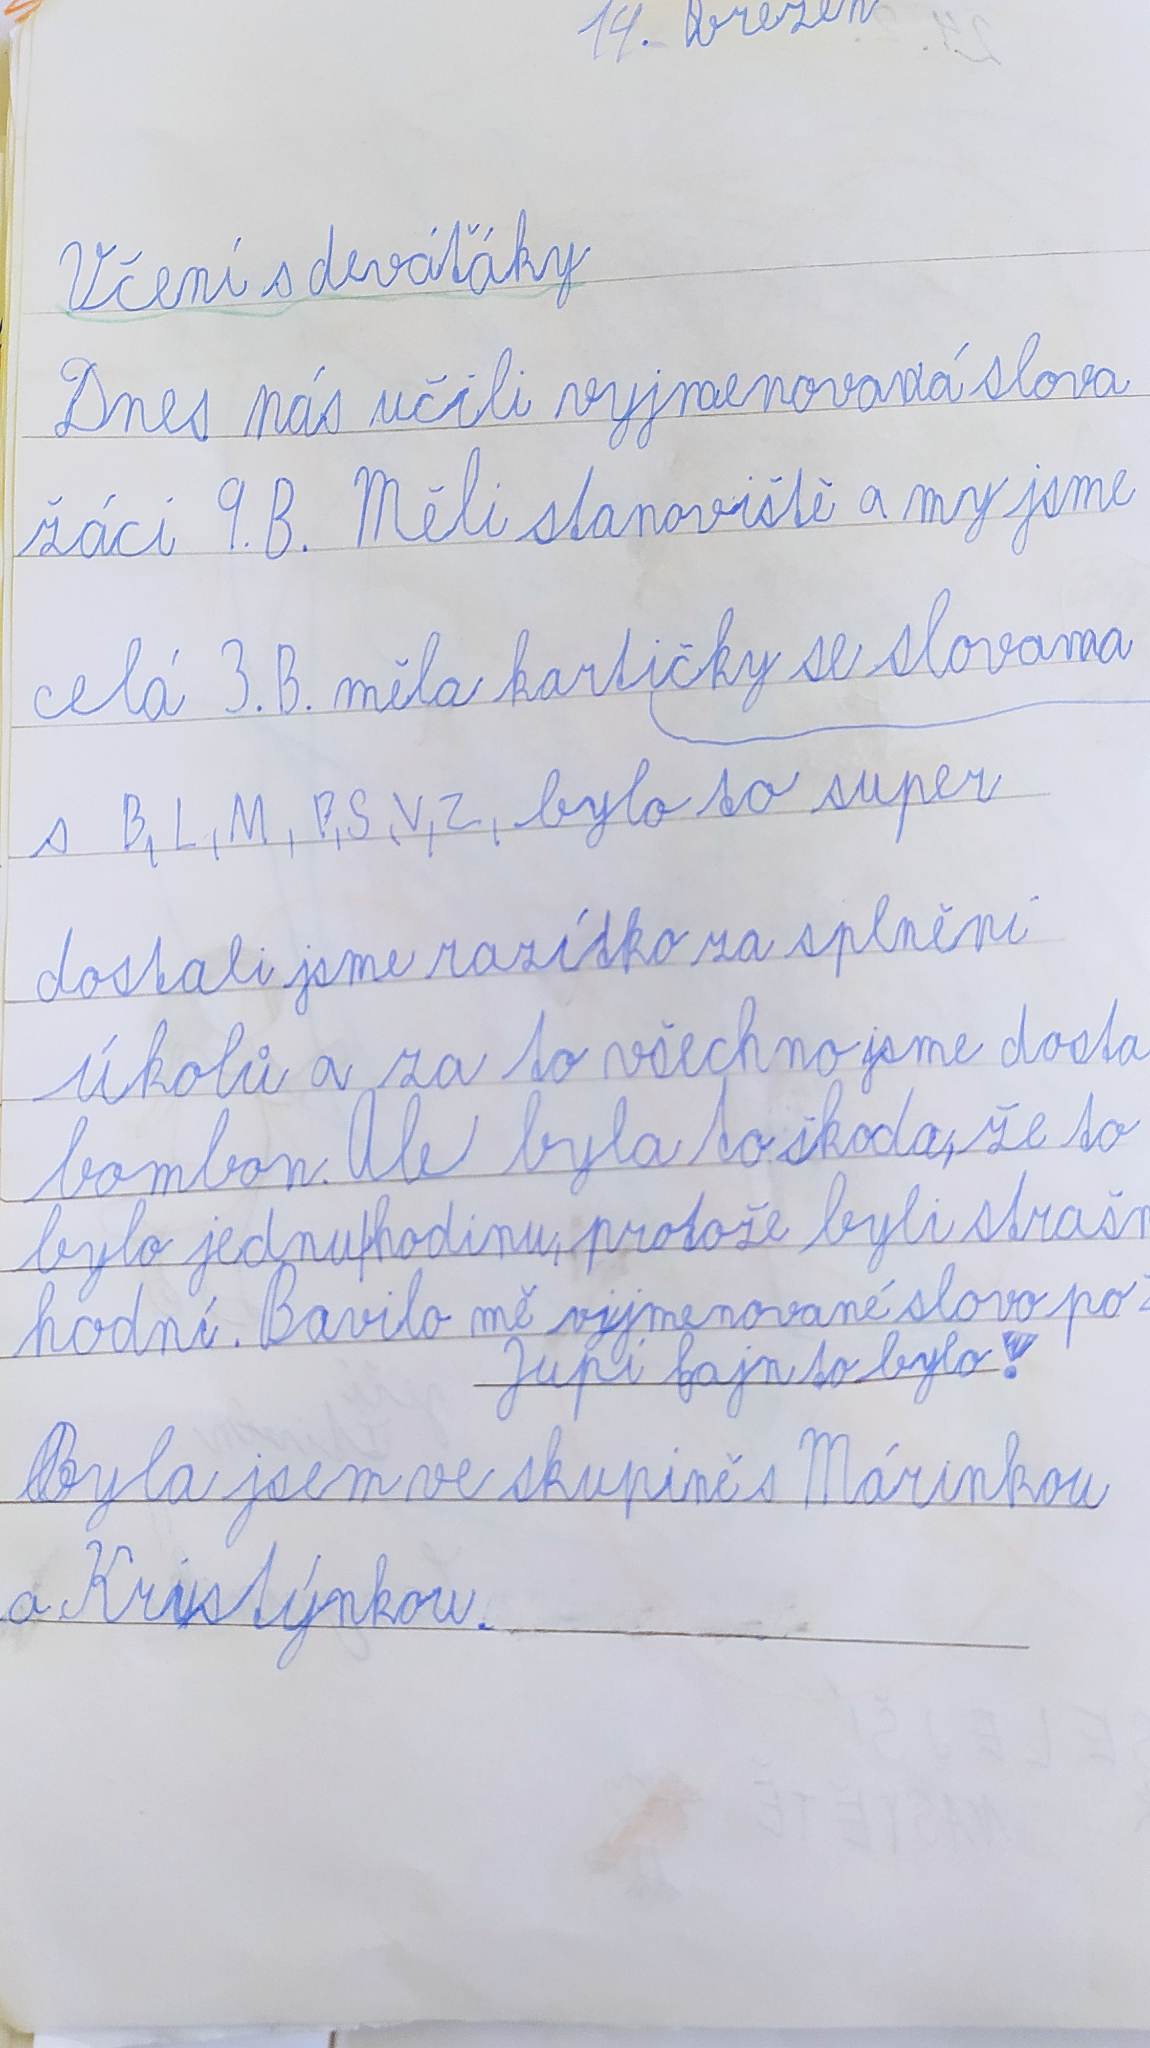 14. březen
Učení s deváťáky
Dnes nás učili vyjmenovaná slova
žáci 9.B. Měli stanoviště a my jsme
celá 3.B. měla kartičky se slovama
s B, L, M, P, S, V, Z, bylo to super
dostali jsme razítko za splnění
úkolů a za to všechno jsme dosta
bombon. Ale byla to škoda, že to
bylo jednu hodinu, protože byli strašn
hodní. Bavilo mě vyjmenované slovo po
Jupí fajn to bylo!
Byla jsem ve skupině s Márinkou
a Kristýnkou.